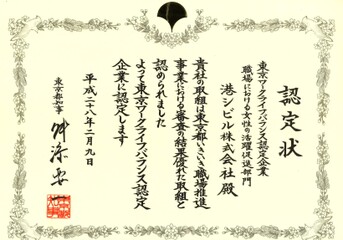 認定状
東京ワークライフバランス認定企業
職場における女性の活躍促進部門
港シビル株式会社殿
貴社の取組は東京都いきいき職場推進
事業における審査の結果優れた取組と
認められました
よって東京ワークライフバランス認定
企業に認定します
平成二十八年二月九日
東京都知事
舛添要一